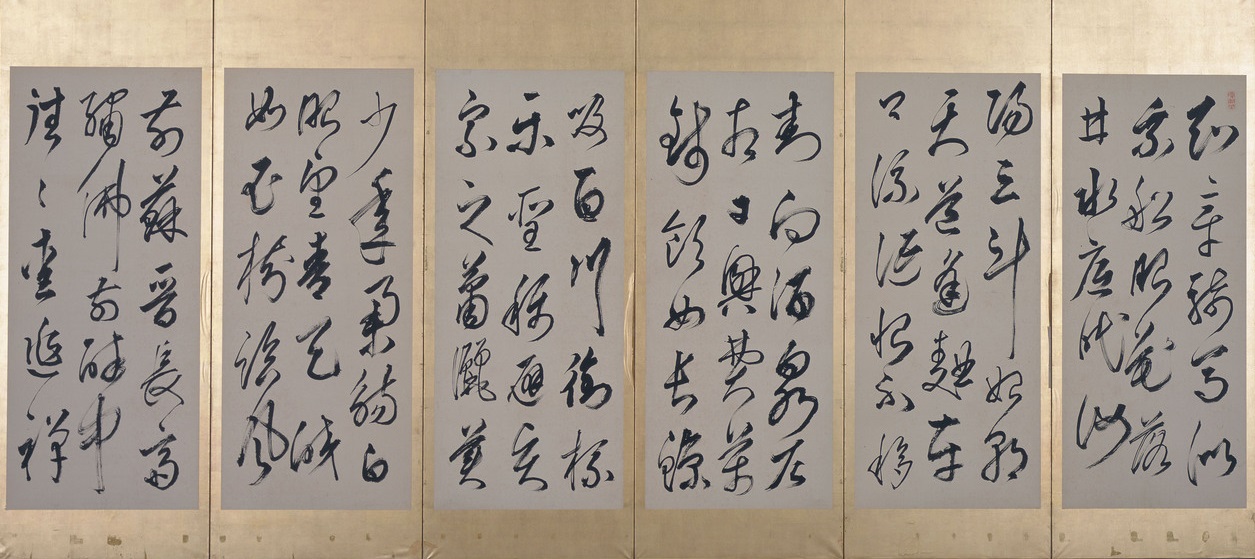 知章騎馬似
乘船眼花落
井水底眠汝
陽三斗始朝
天道逢麴車
口流涎恨不移
封向酒泉左
相日興費萬
錢飲如長鯨
吸百川銜杯
樂聖稱避賢
宗之蕭灑美
少年舉觴白
眼望青天皎
如玉樹臨風
前蘇晉長齋
繡佛前醉中
往々愛逃禪